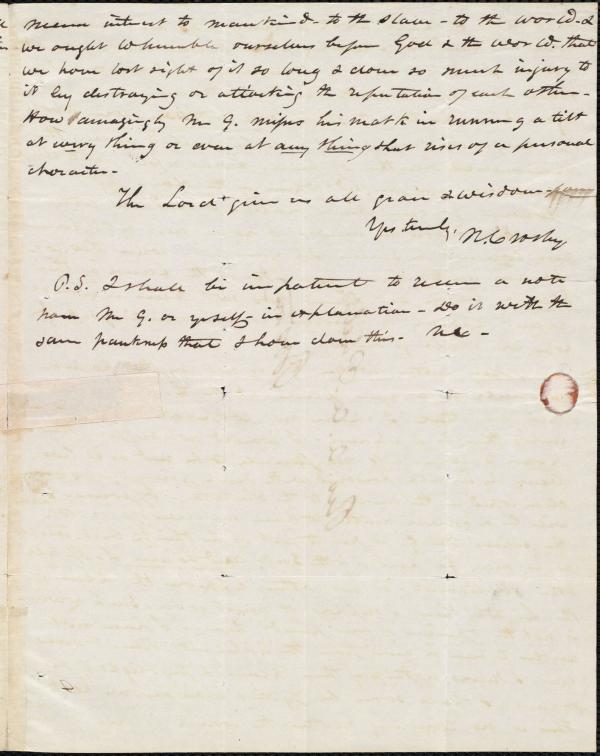 interest to mankind - to the slave - to the world. &
we ought to humble ourselves before God & the world. that
we have lost sight of it so long & done so much injury to
it by destroying or attacking the reputation of each other -
How amazingly Mr G. misses his mark in running a tilt
at every thing or even at any thing that rises of a personal
character -
The Lord give us all grace & wisdom -
Yrs truly, N. Crosby
P.S. I shall be impatient to receive a note
from Mr G. or yrself - in explanation - Do it with the
same frankness that I have done this. NC -